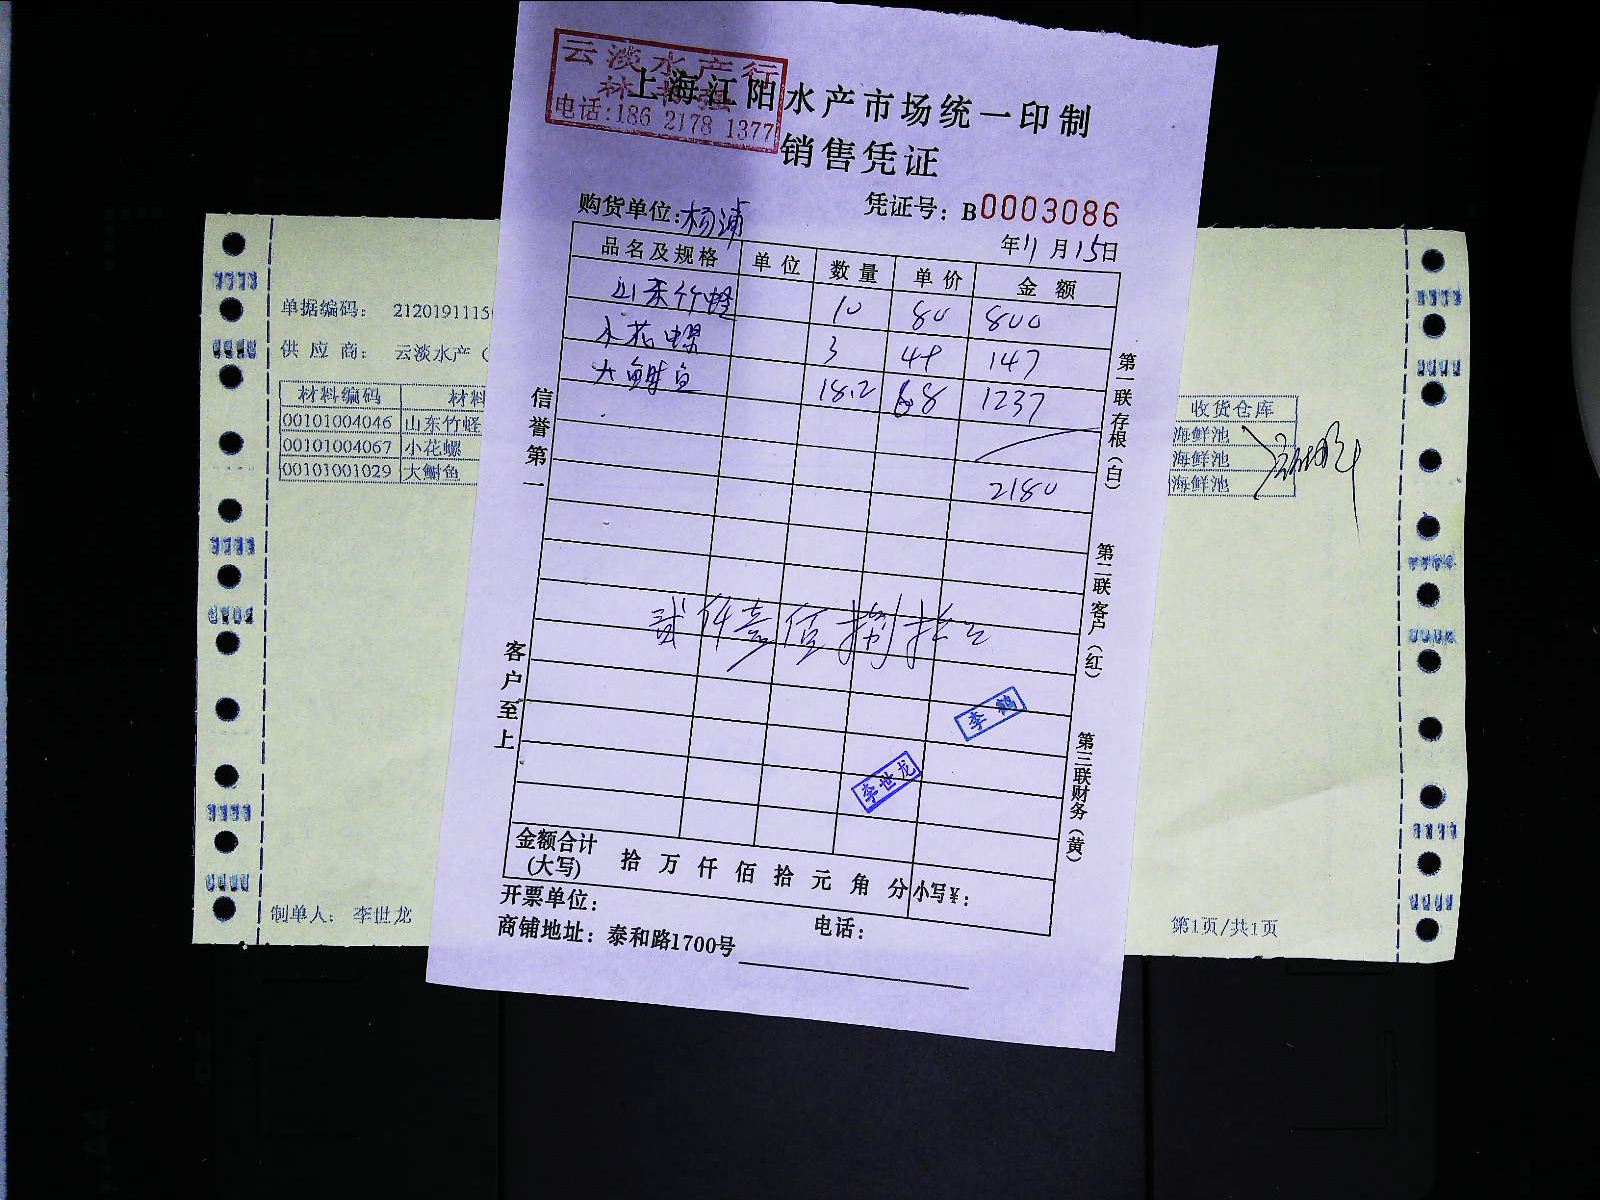 云淡水产行
电话:186 2178 1377
上海江阳水产市场统一印制
销售凭证
购货单位:杨浦
凭证号: B0003086
年11月15日
品名及规格 单位 数量 单价 金额
山东竹蛏 10 80 800
小花螺 3 49 147
大鲥鱼 18.2 68 1237
2180
贰仟壹佰捌拾元
李鹤
李世龙
金额合计(大写) 拾 万 仟 佰 拾 元 角 分 小写¥:
开票单位:
电话:
商铺地址: 泰和路1700号
信誉第一
客户至上
第一联存根(白)
第二联客户(红)
第三联财务(黄)
单据编码: 2120191115
供应商: 云淡水产(
材料编码 材料
00101004046 山东竹蛏
00101004067 小花螺
00101001029 大鲥鱼
制单人: 李世龙
收货仓库
海鲜池
海鲜池
海鲜池
第1页/共1页